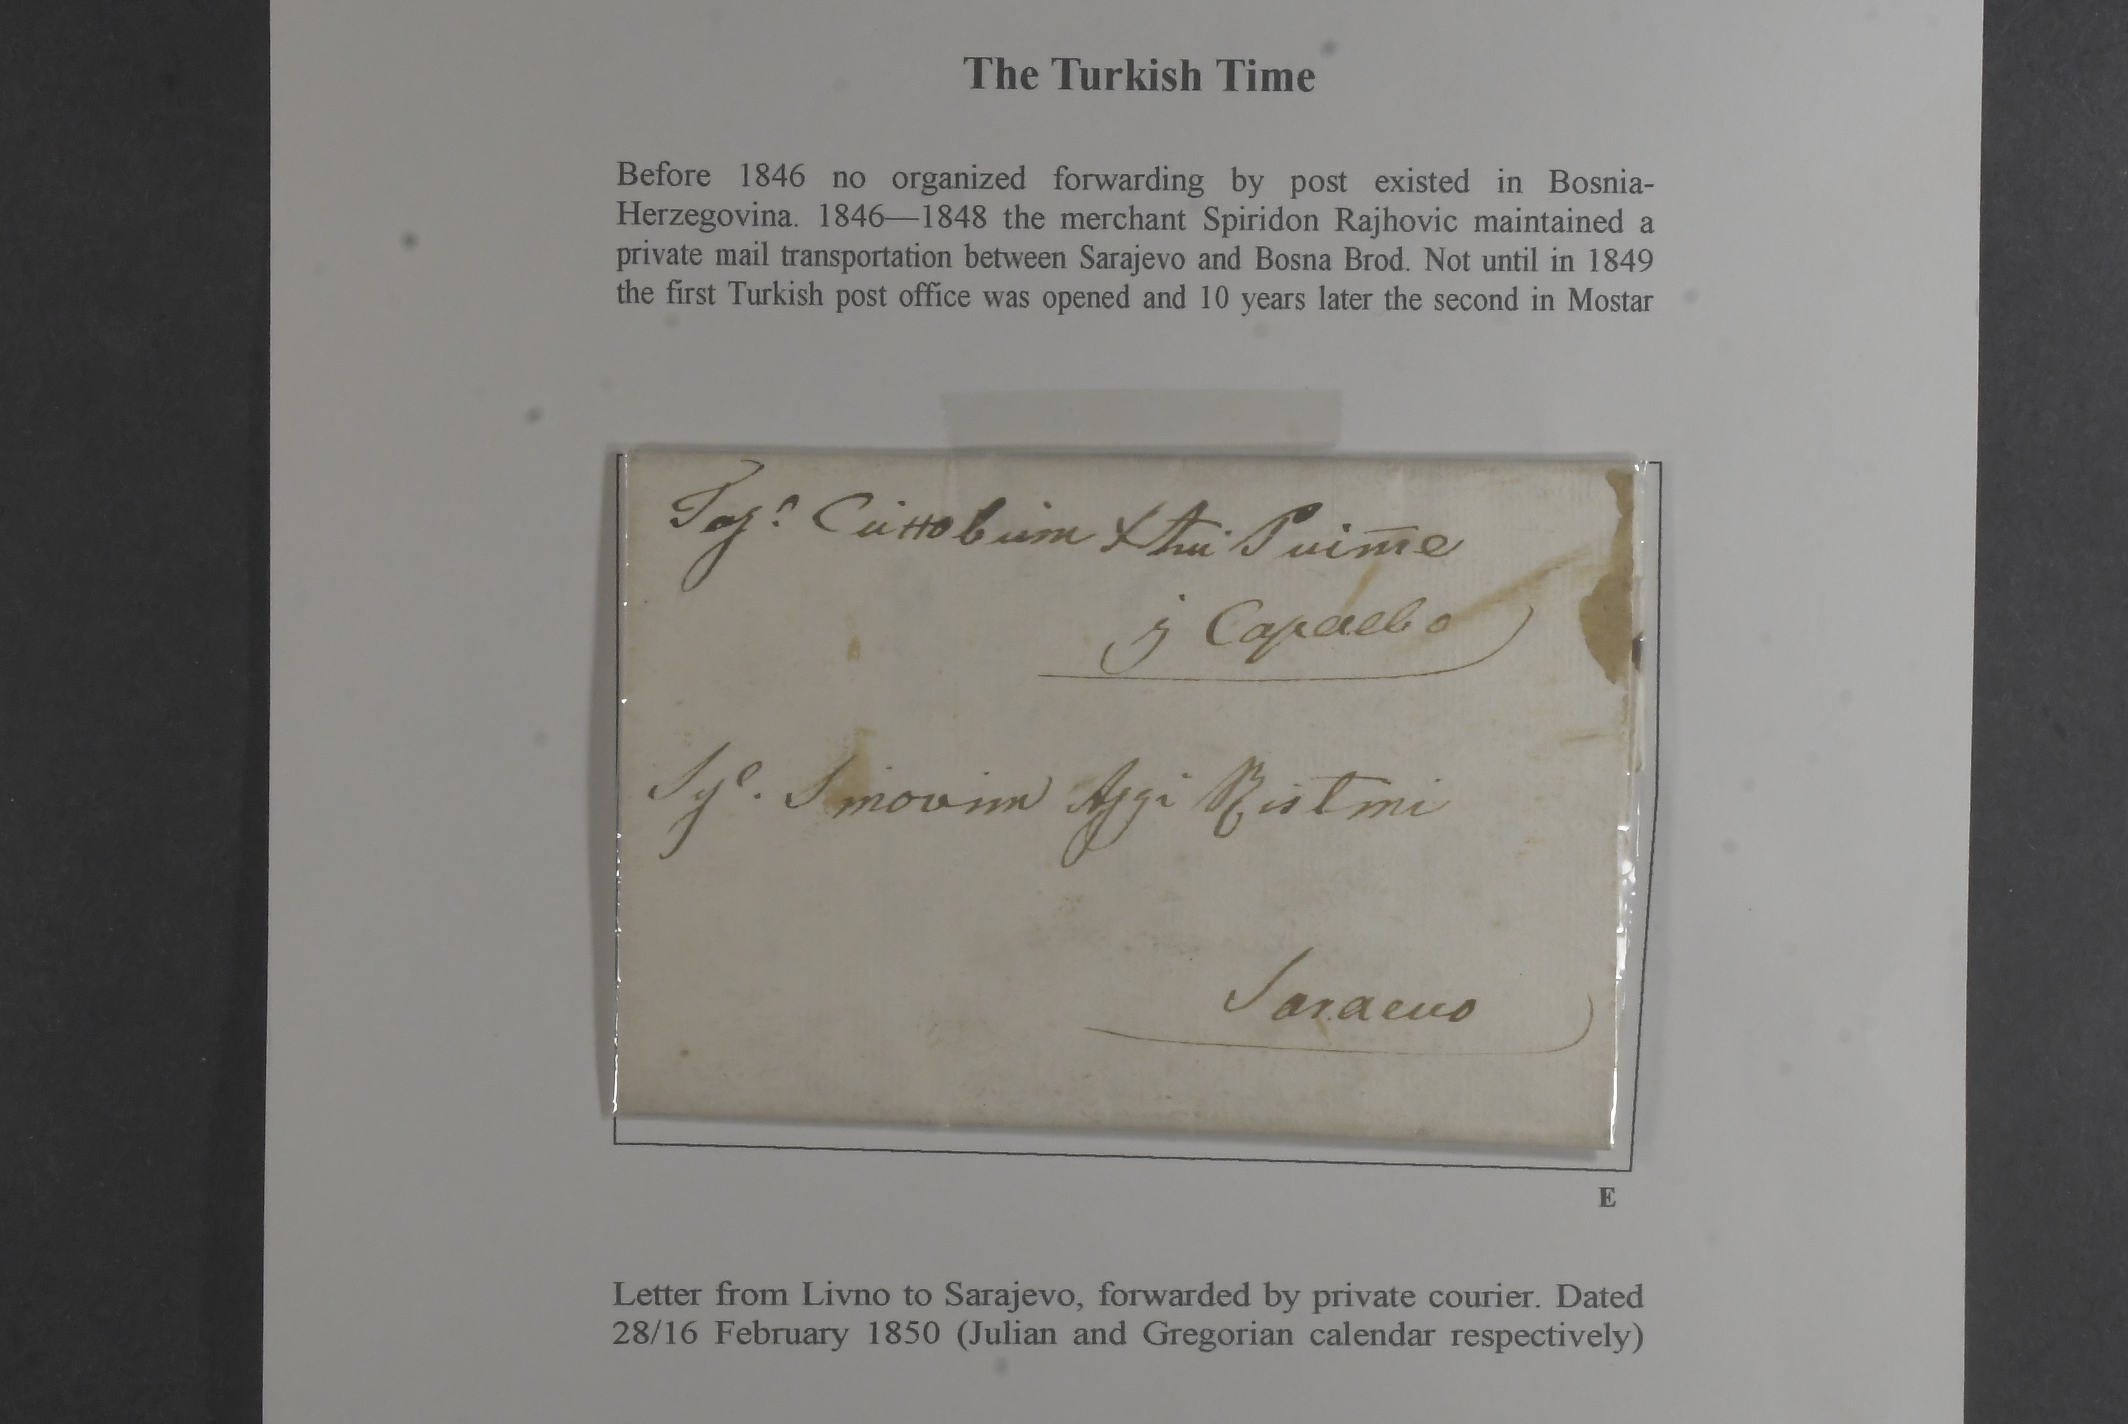 The Turkish Time
Before 1846 no organized forwarding by post existed in Bosnia-
Herzegovina. 1846—1848 the merchant Spiridon Rajhovic maintained a
private mail transportation between Sarajevo and Bosna Brod. Not until in 1849
the first Turkish post office was opened and 10 years later the second in Mostar
Сараево
Sig.e Sinovim Aggi Ristmi
Saraevo
E
Letter from Livno to Sarajevo, forwarded by private courier. Dated
28/16 February 1850 (Julian and Gregorian calendar respectively)